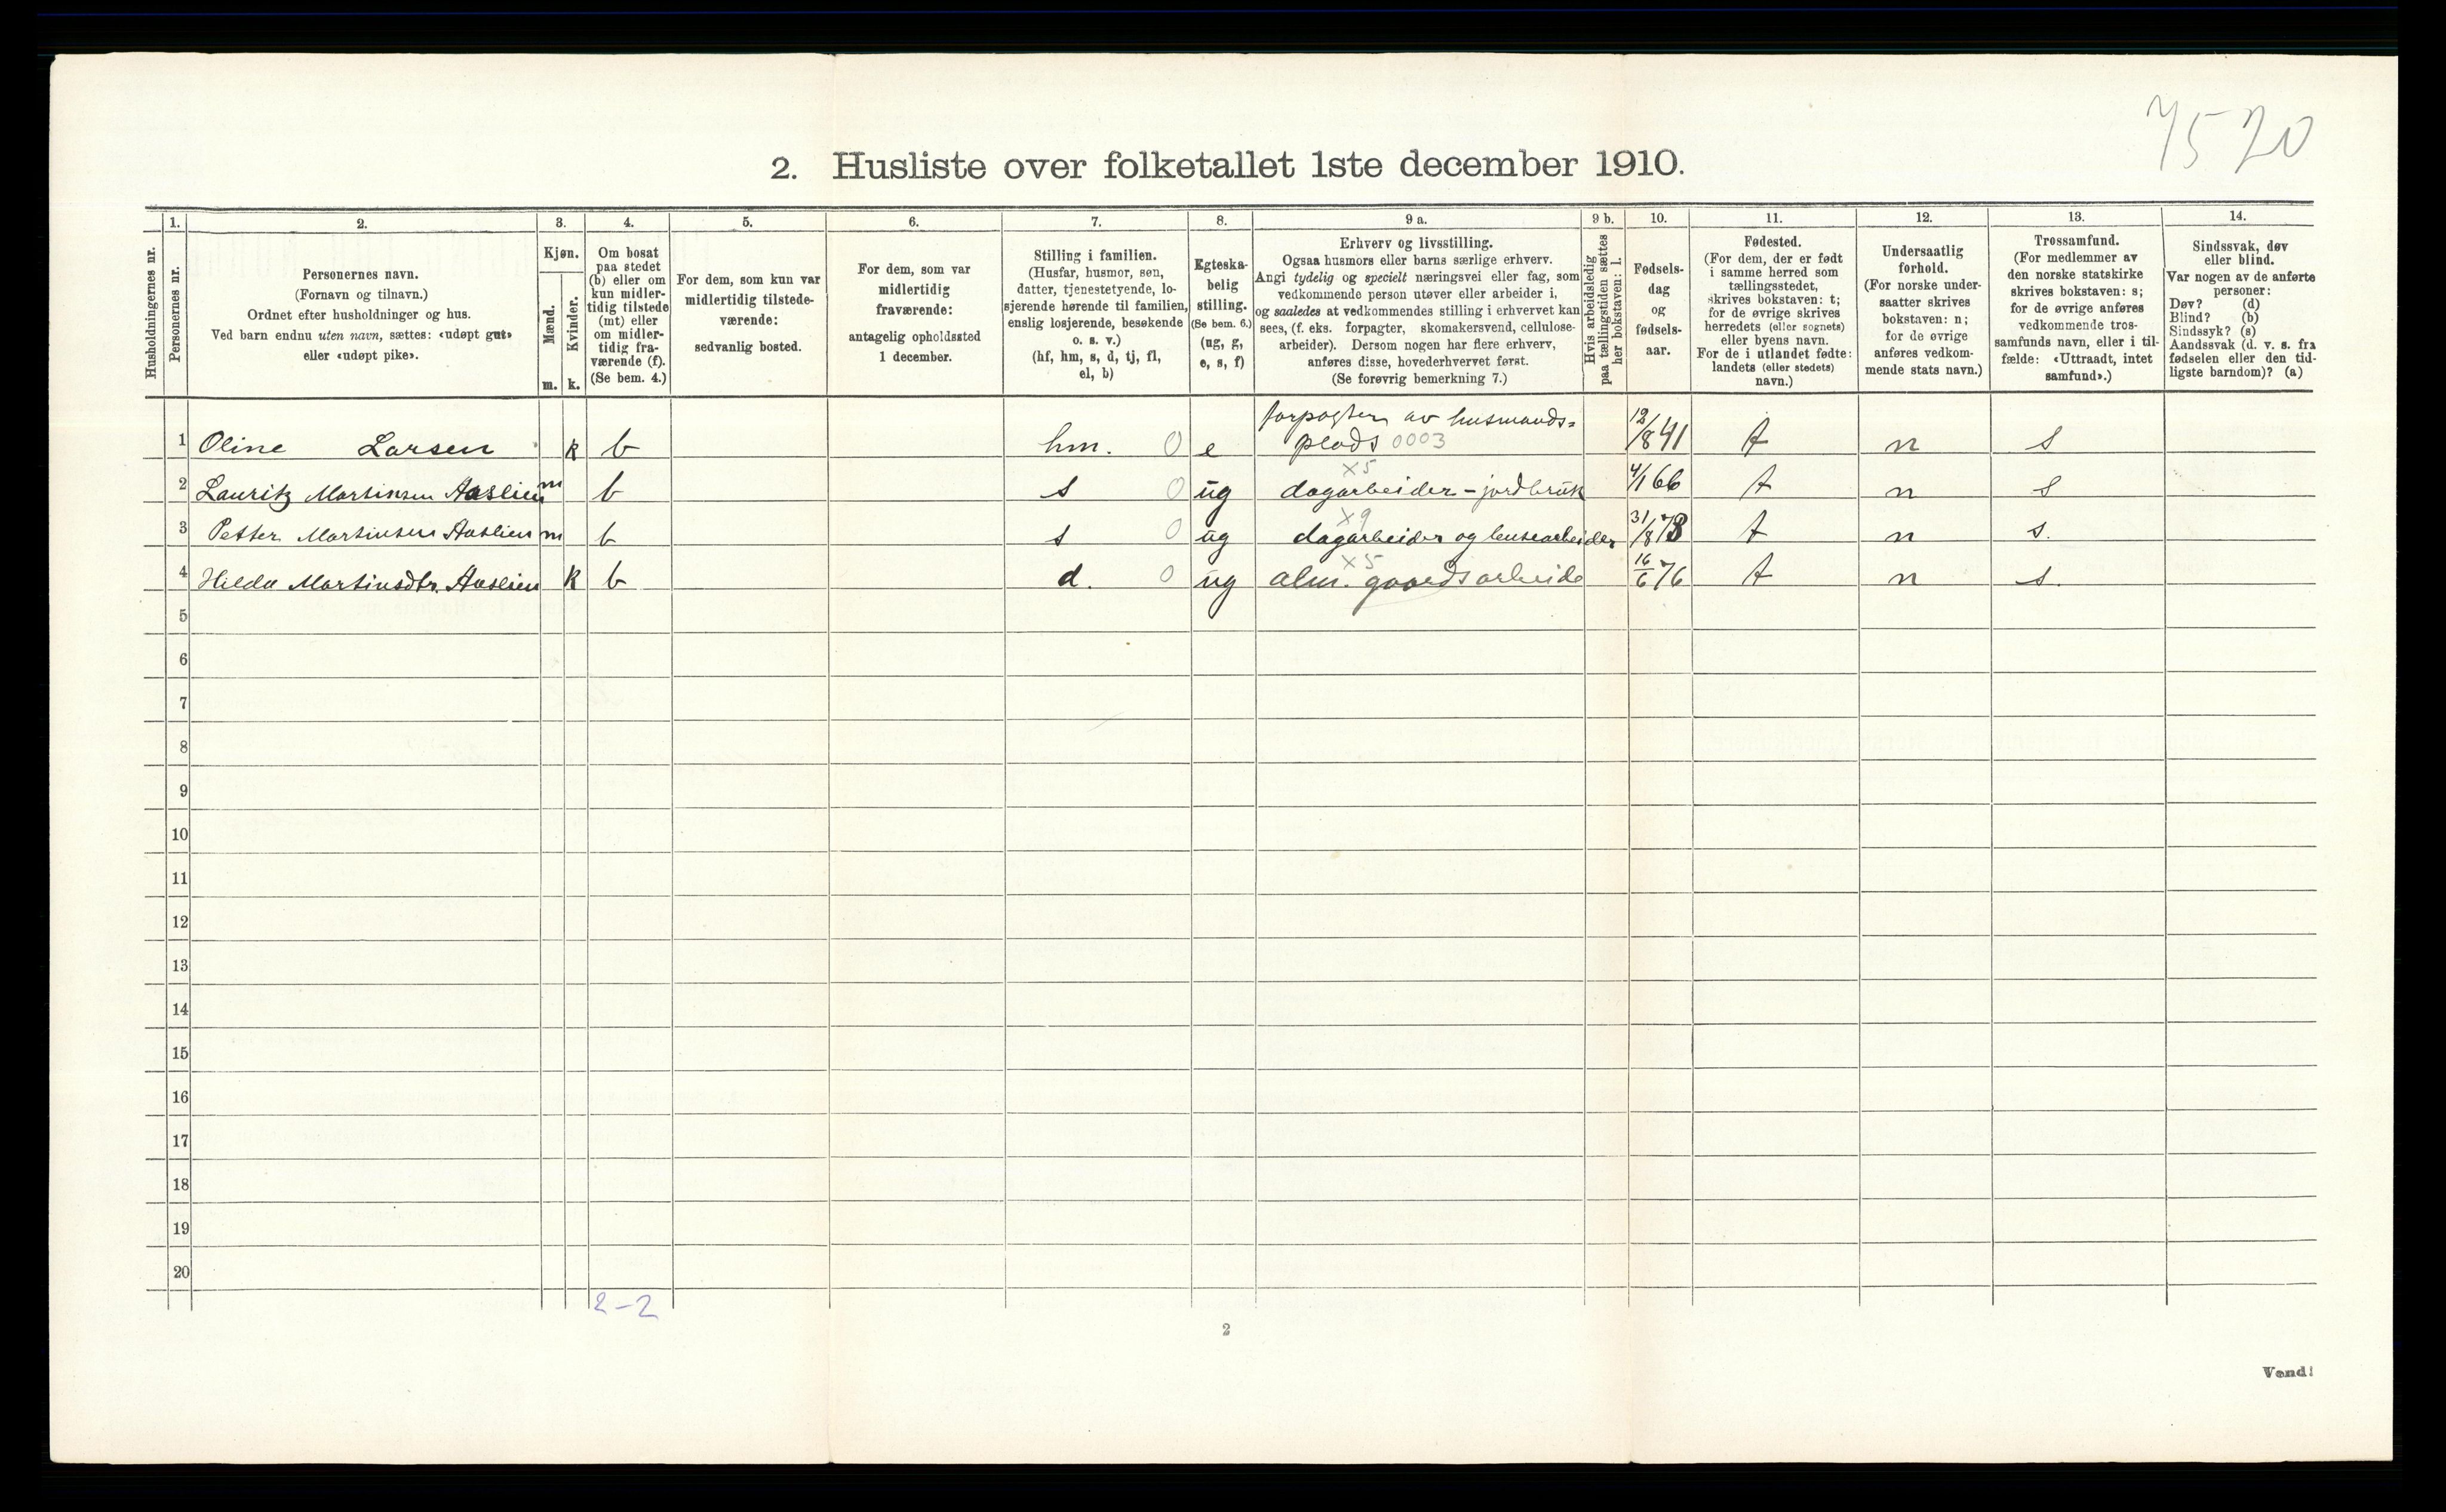 7520
2. Husliste over folketallet 1ste december 1910.
Husholdningernes nr.
1.
Personernes nr.
2.
Personernes navn.
(Fornavn og tilnavn.)
Ordnet efter husholdninger og hus.
Ved barn endnu uten navn, sættes: «udøpt gut»
eller «udøpt pike».
3.
Kjøn.
Mænd.
m.
Kvinder.
k.
4.
Om bosat
paa stedet
(b) eller om
kun midler-
tidig tilstede
(mt) eller
om midler-
tidig fra-
værende (f).
(Se bem. 4.)
5.
For dem, som kun var
midlertidig tilstede-
værende:
sedvanlig bosted.
6.
For dem, som var
midlertidig
fraværende:
antagelig opholdssted
1 december.
7.
Stilling i familien.
(Husfar, husmor, søn,
datter, tjenestetyende, lo-
sjerende hørende til familien,
enslig losjerende, besøkende
o. s. v.)
(hf, hm, s, d, tj, fl,
el, b)
8.
Egteska-
belig
stilling.
(Se bem. 6.)
(ug, g,
e, s, f)
9 a.
Erhverv og livsstilling.
Ogsaa husmors eller barns særlige erhverv.
Angi tydelig og specielt næringsvei eller fag, som
vedkommende person utøver eller arbeider i,
og saaledes at vedkommendes stilling i erhvervet kan
sees, (f. eks. forpagter, skomakersvend, cellulose-
arbeider). Dersom nogen har flere erhverv,
anføres disse, hovederhvervet først.
(Se forøvrig bemerkning 7.)
9 b.
Hvis arbeidsledig
paa tællingstiden sættes
her bokstaven: l.
10.
Fødsels-
dag
og
fødsels-
aar.
11.
Fødested.
(For dem, der er født
i samme herred som
tællingsstedet,
skrives bokstaven: t;
for de øvrige skrives
herredets (eller sognets)
eller byens navn.
For de i utlandet fødte:
landets (eller stedets)
navn.)
12.
Undersaatlig
forhold.
(For norske under-
saatter skrives
bokstaven: n;
for de øvrige
anføres vedkom-
mende stats navn.)
13.
Trossamfund.
(For medlemmer av
den norske statskirke
skrives bokstaven: s;
for de øvrige anføres
vedkommende tros-
samfunds navn, eller i til-
fælde: «Uttraadt, intet
samfund».)
14.
Sindssvak, døv
eller blind.
Var nogen av de anførte
personer:
Døv? (d)
Blind? (b)
Sindssyk? (s)
Aandssvak (d. v. s. fra
fødselen eller den tid-
ligste barndom)? (a)
forpagter av husmands=
1 Oline Larsen k b hm. 0 e plads 0003 12/8 41 t n s
x5
2 Lauritz Martinsen Aaslien m b s 0 ug dagarbeider - jordbruk 4/1 66 t n s
x9
3 Petter Martinsen Aaslien m b s 0 ug dagarbeider og lensearbeider 31/8 73 t n s.
x5
4 Hilda Martinsdtr. Aaslien k b d. 0 ug alm. gaardsarbeide 16/6 76 t n s.
5
6
7
8
9
10
11
12
13
14
15
16
17
18
19
20
2-2
2
Vend!